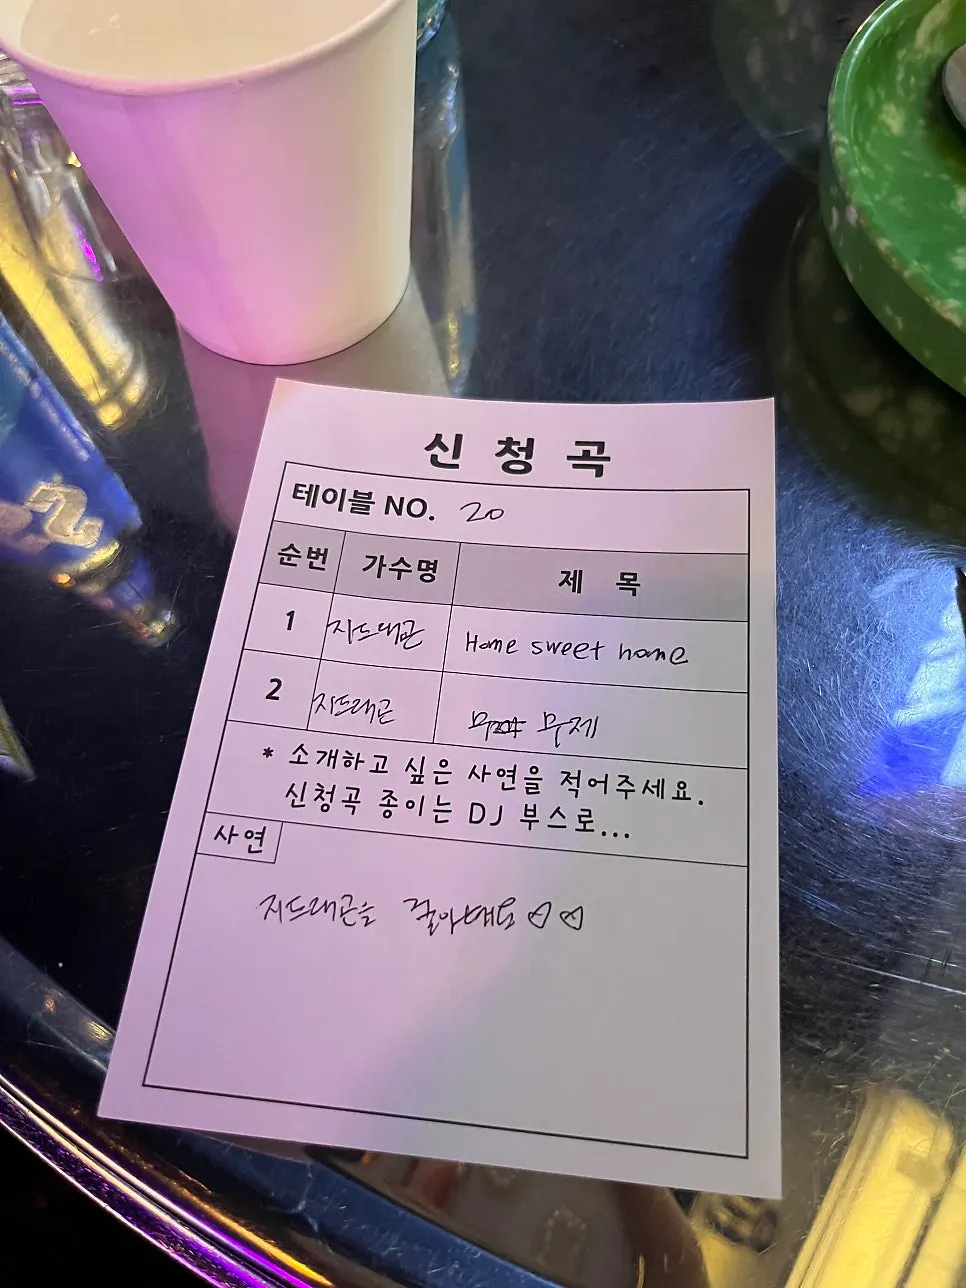 신청곡
테이블 NO. 20
순번 가수명 제 목
1 지드래곤 Home sweet home
2 지드래곤 무제
* 소개하고 싶은 사연을 적어주세요.
신청곡 종이는 DJ 부스로...
사연
지드래곤을